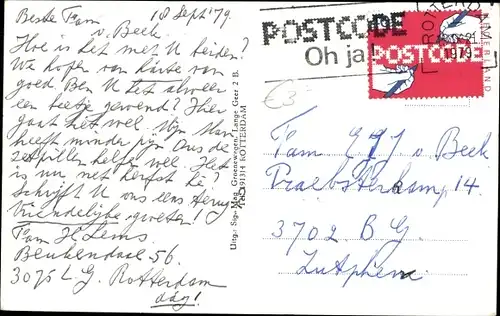 18 Sept '79.
Beste Fam
v. Beek.
Hoe is het met U beiden?
Wij hopen van harte van
goed. Ben U al weer
een beetje gewend? Hier
gaat het wel. Mijn Man
heeft minder pijn dus de
zetpillen helpen wel. Het
is nu met herfst hè?
Schrijft U ons eens terug
Vriendelijke groeten!
Fam H Lems
Beukendaal 56.
3075 L.G. Rotterdam
dág!
Uitg: Sig. Mag. Groenewegen, Lange Geer 2 B.
Tel. 191314 ROTTERDAM
POSTCODE
Oh ja!
ROTTERDAM
1979
POSTCODE
NEDERLAND
€3
Fam E.J. v. Beek
14.
3702 B G.
Zutphen